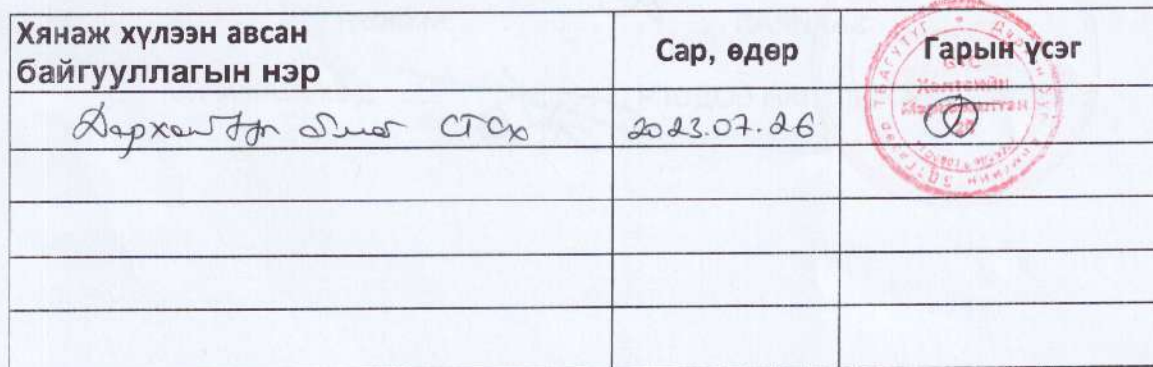 Хянаж хүлээн авсан
байгууллагын нэр
Сар, өдөр
Гарын үсэг
Дархан-Уул аймаг СТСХ
2023.07.26